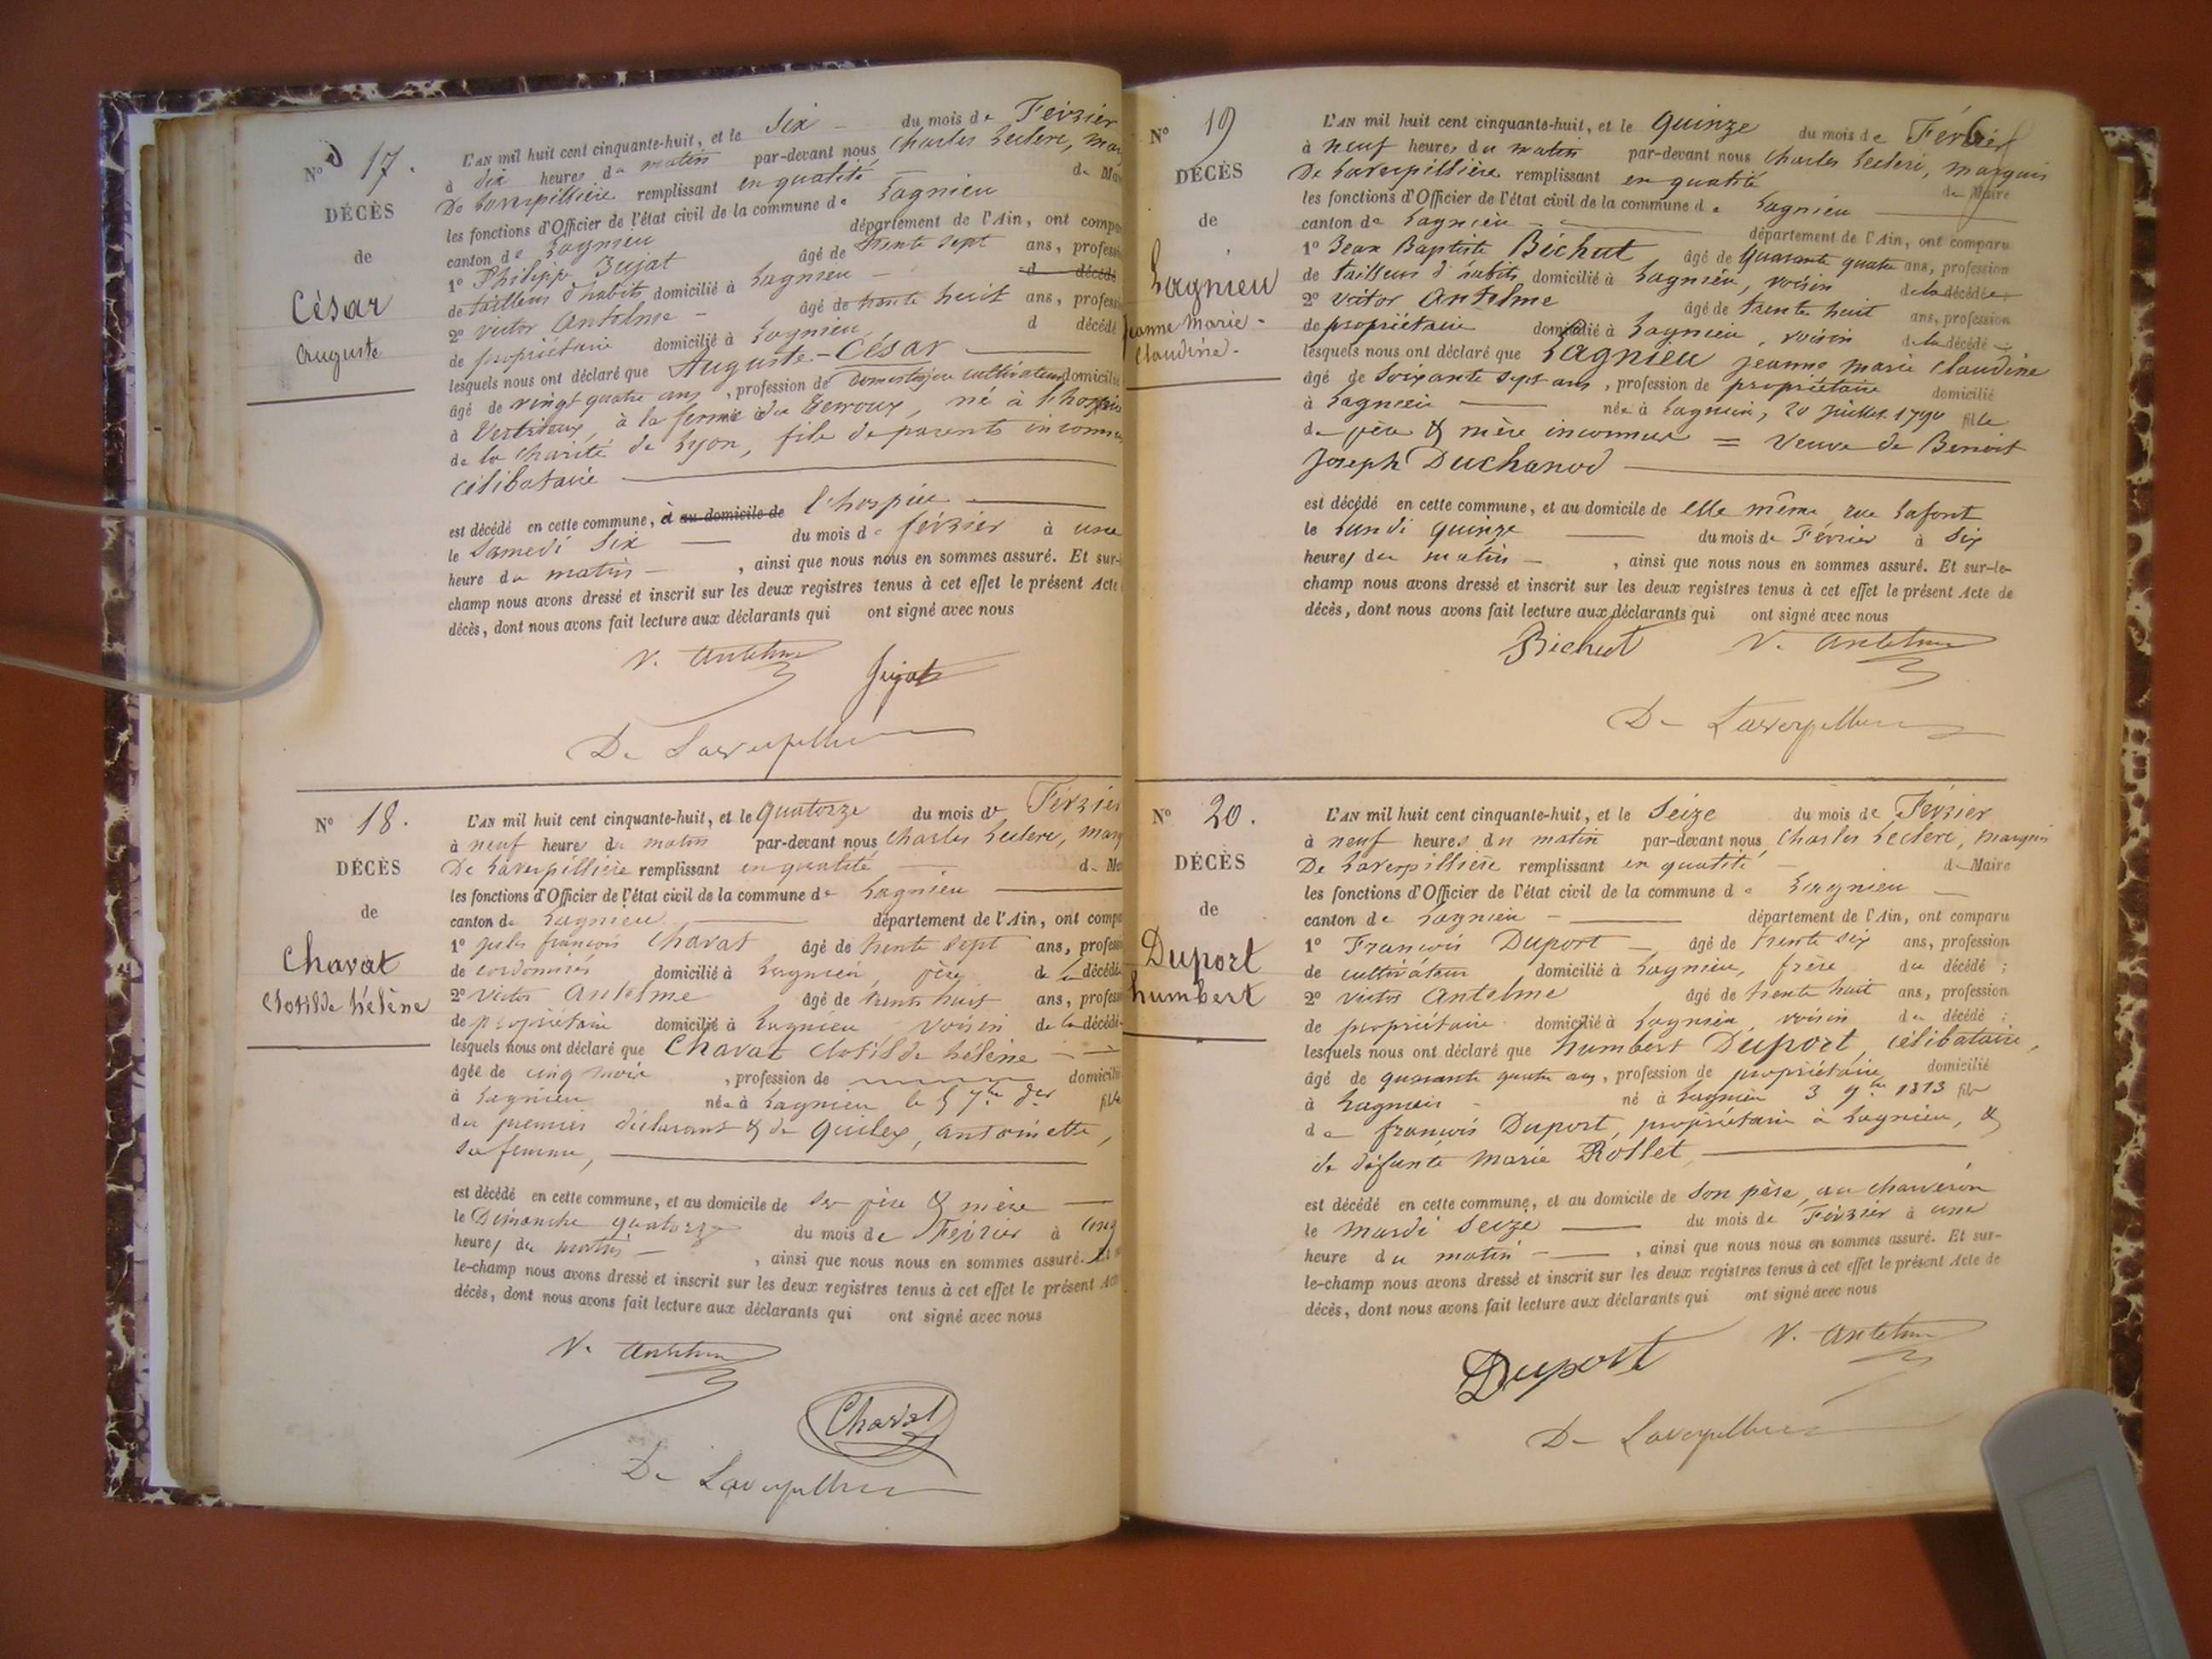 N° 17.
DÉCÈS
de
César
Auguste
L'AN mil huit cent cinquante-huit, et le Six du mois de Février
à dix heures du matin par-devant nous Charles Leclerc, mar
De Laverpillière remplissant en qualité de Ma
les fonctions d'Officier de l'état civil de la commune de Lagnieu
canton de Lagnieu département de l'Ain, ont compa
1° Philippe Jujat âgé de trente sept ans, professi
de tailleur d'habits domicilié à Lagnieu d décédé
2° Victor Antelme âgé de trente huit ans, profess
de propriétaire domicilié à Lagnieu d décédé
lesquels nous ont déclaré que Auguste-César
âgé de vingt quatre ans, profession de domestique cultivateur domicilié
à à la ferme du né à l'hospice
de la charité de Lyon, fils de parents inconnus
célibataire
est décédé en cette commune, à au domicile de l'hospice
le Samedi Six du mois de février à une
heure du matin, ainsi que nous nous en sommes assuré. Et sur-
champ nous avons dressé et inscrit sur les deux registres tenus à cet effet le présent Acte
décès, dont nous avons fait lecture aux déclarants qui ont signé avec nous
V. Antelme Jujat
De Laverpillière
N° 18.
DÉCÈS
de
Chavat
Clotilde hélène
L'AN mil huit cent cinquante-huit, et le Quatorze du mois de Février
à neuf heures du matin par-devant nous Charles Leclerc, marq
De Laverpillière remplissant en qualité de Ma
les fonctions d'Officier de l'état civil de la commune de Lagnieu
canton de Lagnieu département de l'Ain, ont compa
1° jules françois Chavat âgé de trente sept ans, professi
de cordonnier domicilié à Lagnieu, père de la décédée
2° Victor Antelme âgé de trente huit ans, professi
de propriétaire domicilié à Lagnieu voisin de la décédée
lesquels nous ont déclaré que Chavat Clotilde hélène
âgée de cinq mois, profession de domicilié
à Lagnieu née à Lagnieu le 5 7bre der fille
du premier déclarant & de Quilex, antoinette,
sa femme,
est décédé en cette commune, et au domicile de ses père & mère
le Dimanche quatorze du mois de Février à cinq
heures du matin, ainsi que nous nous en sommes assuré. Et
le-champ nous avons dressé et inscrit sur les deux registres tenus à cet effet le présent Acte
décès, dont nous avons fait lecture aux déclarants qui ont signé avec nous
V. Antelme
Chavat
De Laverpillière
N° 19
DÉCÈS
de
Lagnieu
Jeanne Marie-
Claudine-
L'AN mil huit cent cinquante-huit, et le Quinze du mois de Février
à neuf heures du matin par-devant nous Charles Leclerc, marquis
De Laverpillière remplissant en qualité de Maire
les fonctions d'Officier de l'état civil de la commune de Lagnieu
canton de Lagnieu département de l'Ain, ont comparu
1° Jean Baptiste Béchut âgé de Quarante quatre ans, profession
de tailleur d'habits domicilié à Lagnieu, voisin de la décédée ;
2° Victor Antelme âgé de trente huit ans, profession
de propriétaire domicilié à Lagnieu, voisin de la décédé
lesquels nous ont déclaré que Lagnieu jeanne marie Claudine
âgé de soixante sept ans, profession de propriétaire domicilié
à Lagnieu née à Lagnieu, 20 juillet 1790 fille
de père & mère inconnus = Veuve de Benoit
Joseph Duchanod
est décédé en cette commune, et au domicile de elle même, rue Lafont
le Lundi quinze du mois de Février à Six
heures du matin, ainsi que nous nous en sommes assuré. Et sur-le-
champ nous avons dressé et inscrit sur les deux registres tenus à cet effet le présent Acte de
décès, dont nous avons fait lecture aux déclarants qui ont signé avec nous
Bechut V. Antelme
De Laverpillière
N° 20.
DÉCÈS
de
Duport
humbert
L'AN mil huit cent cinquante-huit, et le Seize du mois de Février
à neuf heures du matin par-devant nous Charles Leclerc, marquis
De Laverpillière remplissant en qualité de Maire
les fonctions d'Officier de l'état civil de la commune de Lagnieu
canton de Lagnieu département de l'Ain, ont comparu
1° François Duport âgé de trente six ans, profession
de cultivateur domicilié à Lagnieu, frère du décédé ;
2° Victor Antelme âgé de trente huit ans, profession
de propriétaire domicilié à Lagnieu, voisin du décédé ;
lesquels nous ont déclaré que humbert Duport, célibataire,
âgé de quarante quatre ans, profession de propriétaire domicilié
à Lagnieu né à Lagnieu 3 9bre 1813 fils
de françois Duport, propriétaire à Lagnieu, &
de défunte Marie Rollet,
est décédé en cette commune, et au domicile de son père, au
le mardi Seize du mois de Février à une
heure du matin, ainsi que nous nous en sommes assuré. Et sur-
le-champ nous avons dressé et inscrit sur les deux registres tenus à cet effet le présent Acte de
décès, dont nous avons fait lecture aux déclarants qui ont signé avec nous
Duport V. Antelme
De Laverpillière